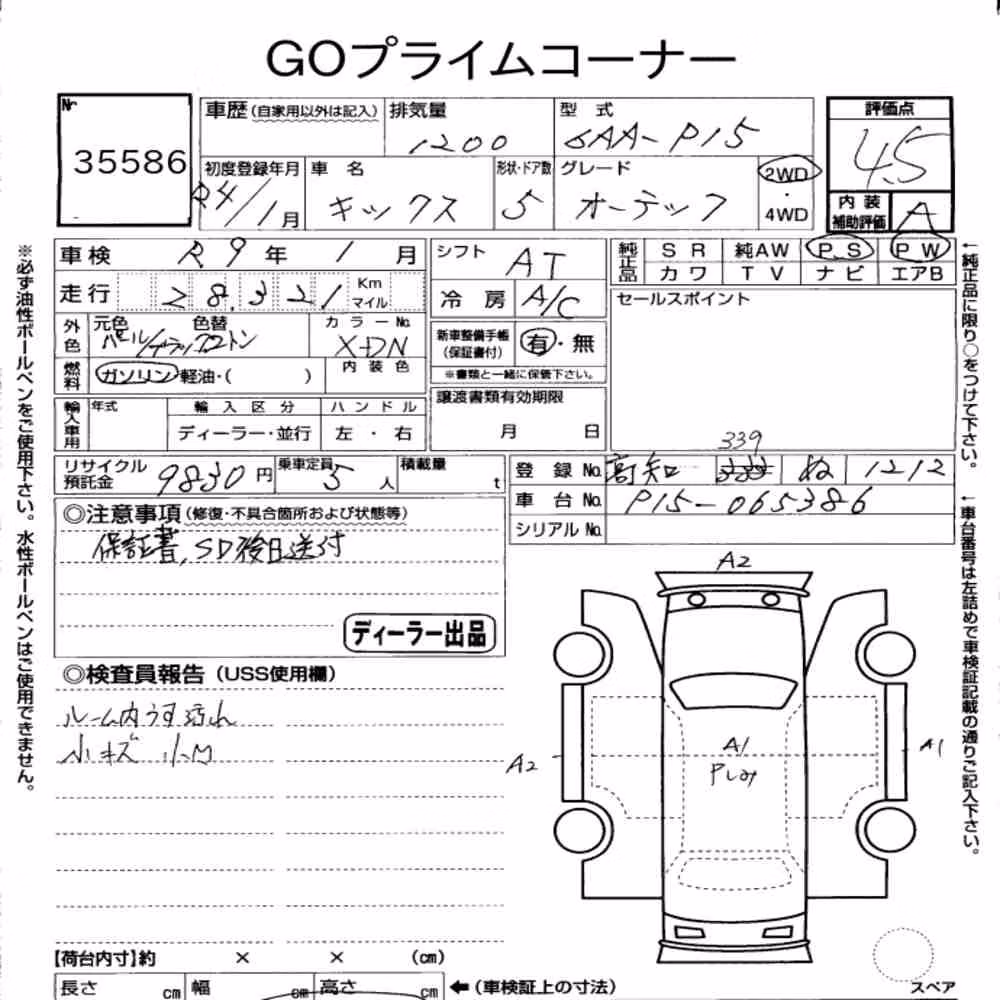 GOプライムコーナー
Nr
35586
車歴(自家用以外は記入)
排気量
1200
型 式
6AA-P15
評価点
4.5
初度登録年月
R4/1月
車 名
キックス
形状・ドア数
5
グレード
オーテック
2WD
・
4WD
内 装
補助評価
A
車検 R9年 1月
シフト AT
純正品
S R 純AW P.S P W
カワ T V ナビ エアB
走行 28,321 Km
マイル
冷 房 A/C
セールスポイント
外色
元色 色替
カ ラ ー No.
XDN
新車整備手帳
(保証書付)
有・無
燃料
ガソリン・軽油・( )
内 装 色
※書類と一緒に保管下さい。
譲渡書類有効期限
月 日
輸入車用
年式
輸 入 区 分
ハ ン ド ル
ディーラー・並行
左 ・ 右
リサイクル
預託金
9830円
乗車定員
5人
積載量
t
339
登 録 No. 高知 ぬ 1212
車 台 No. P15-065386
シリアル No.
◎注意事項(修復・不具合箇所および状態等)
保証書,SD後日送付
ディーラー出品
◎検査員報告(USS使用欄)
ルーム内うす汚れ
小キズ 小凹
A2
A2
A1
A1
【荷台内寸】約 × × (cm)
長さ cm 幅 cm 高さ cm ←(車検証上の寸法)
スペア
※必ず油性ボールペンをご使用下さい。水性ボールペンはご使用できません。
←純正品に限り○をつけて下さい。
←車台番号は左詰めで車検証記載の通りご記入下さい。